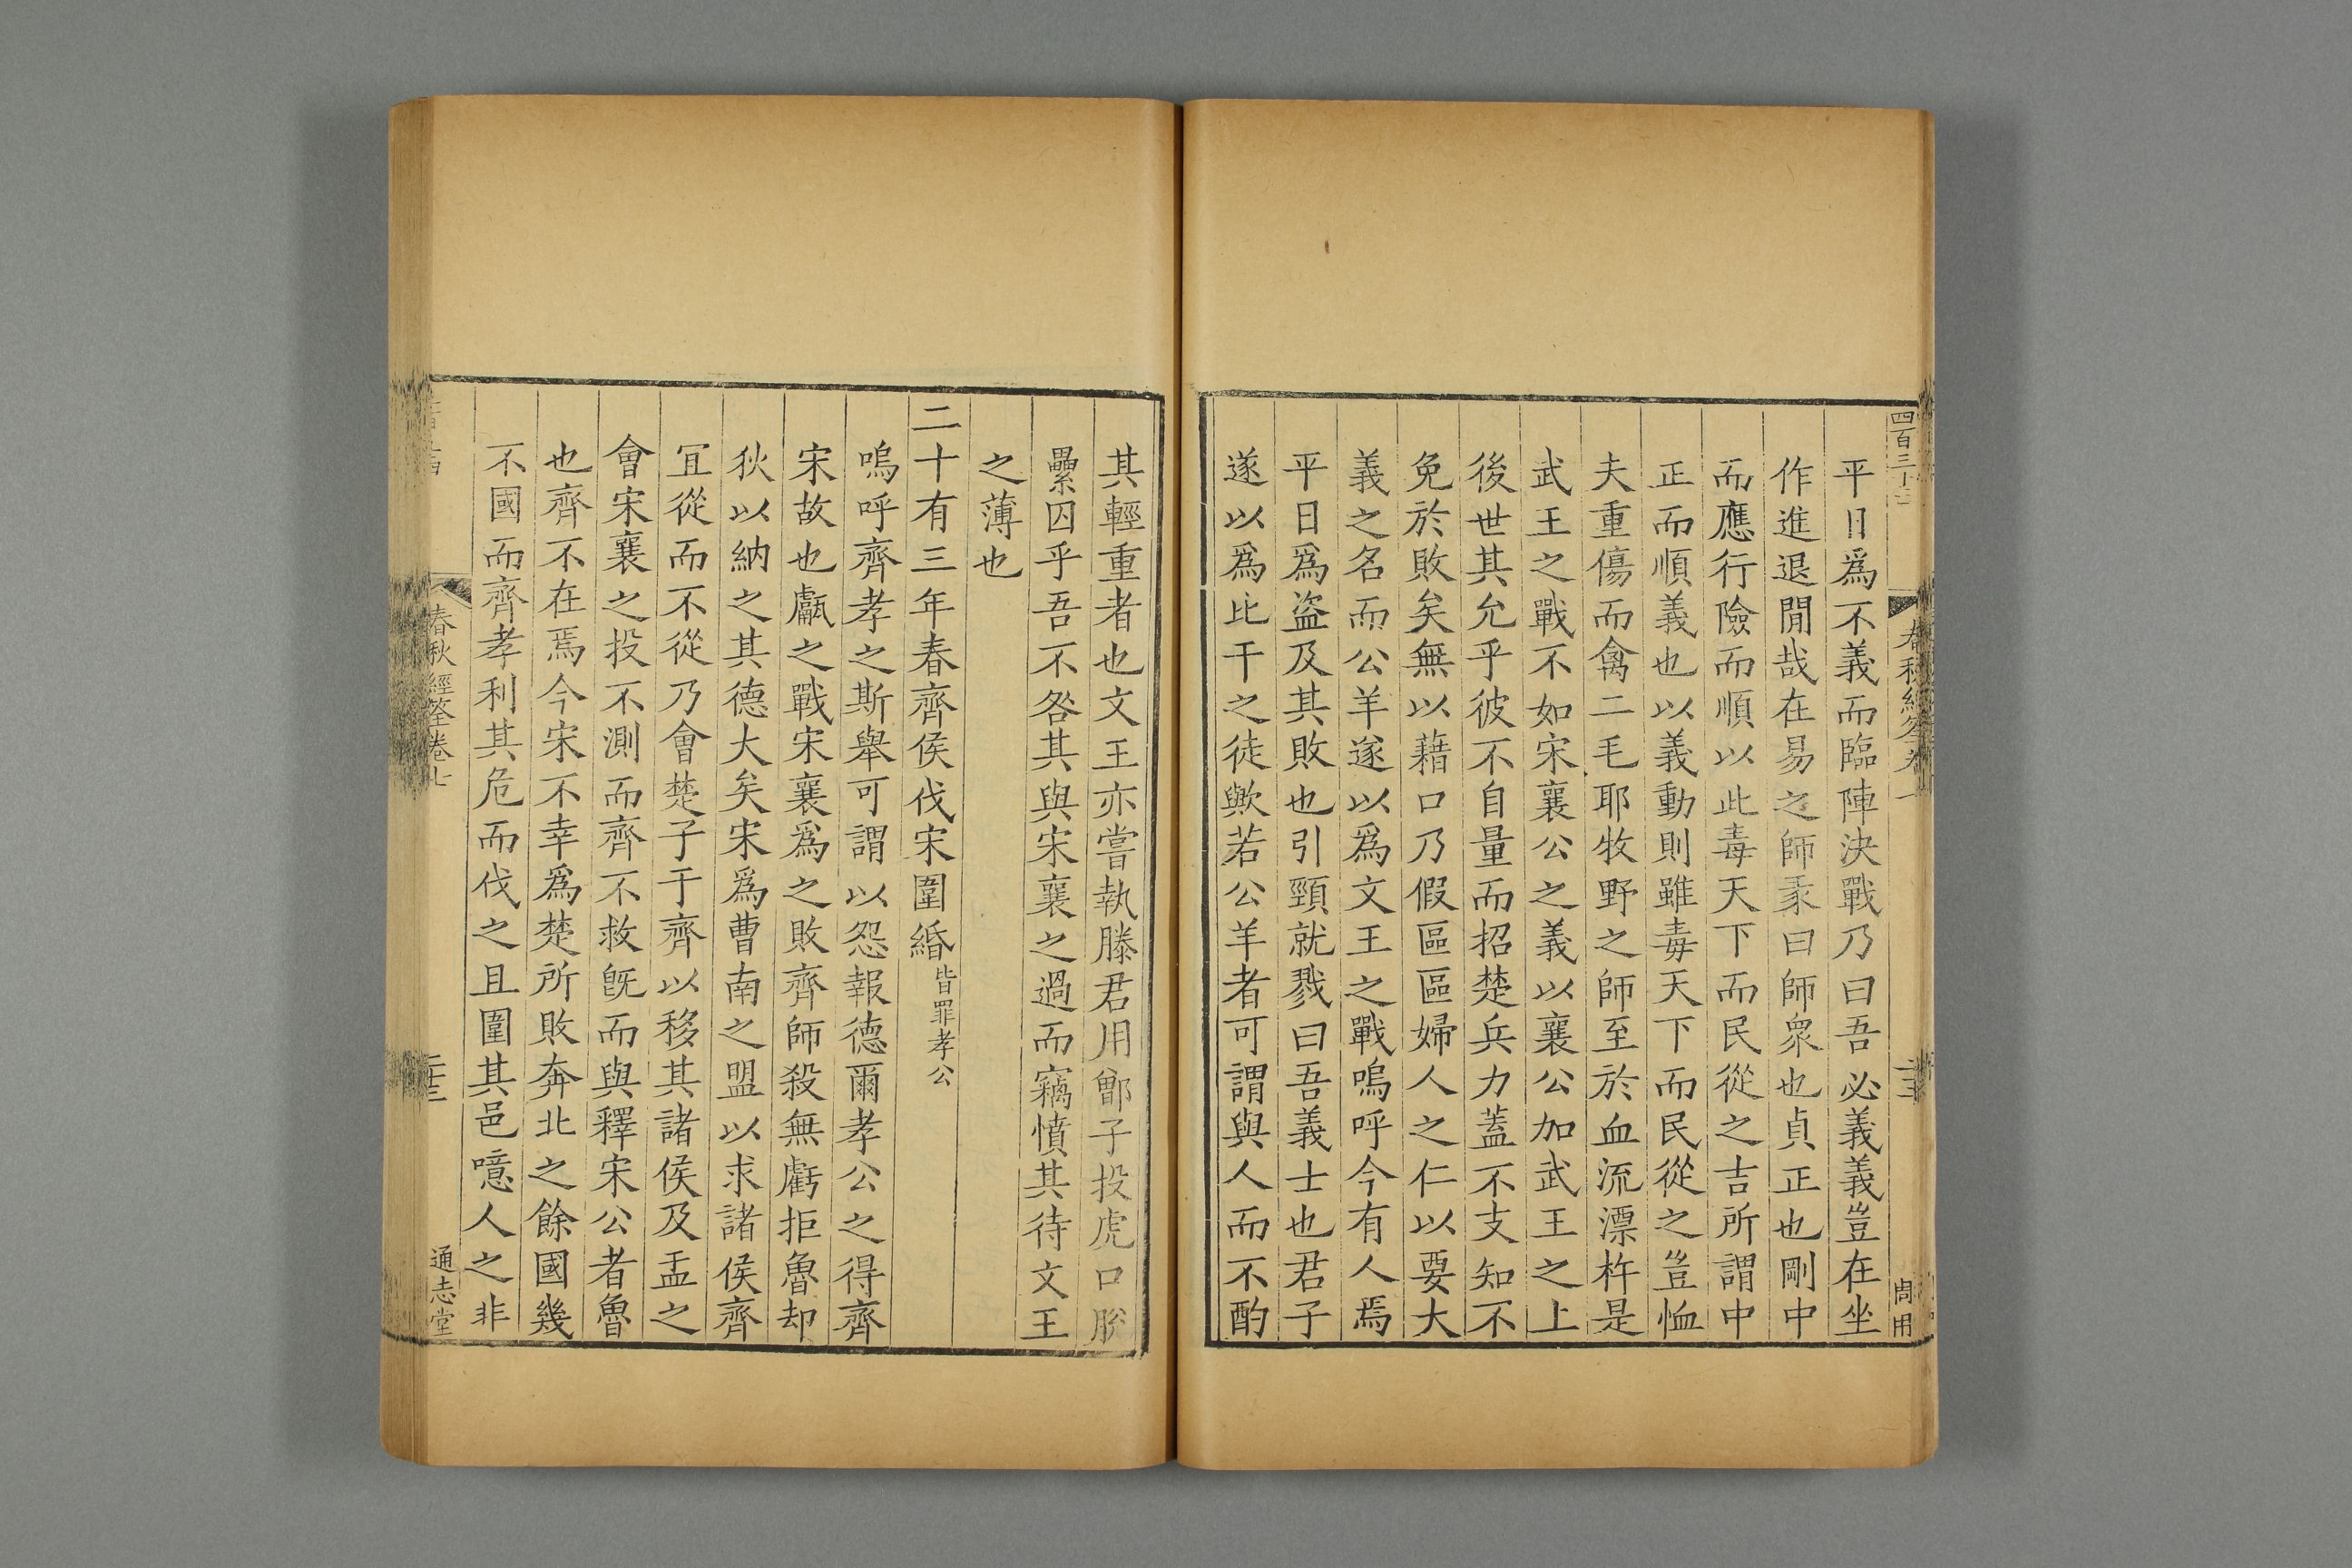 平日爲不義而臨陣決戰乃曰吾必義義豈在坐
作進退閒哉在易之師彖曰師衆也貞正也剛中
而應行險而順以此毒天下而民從之吉所謂中
正而順義也以義動則雖毒天下而民從之豈恤
夫重傷而禽二毛耶牧野之師至於血流漂杵是
武王之戰不如宋襄公之義以襄公加武王之上
後世其允乎彼不自量而招楚兵力蓋不支知不
免於敗矣無以藉口乃假區區婦人之仁以要大
義之名而公羊遂以爲文王之戰嗚呼今有人焉
平日爲盜及其敗也引頸就戮曰吾義士也君子
遂以爲比干之徒歟若公羊者可謂與人而不酌
其輕重者也文王亦嘗執滕君用鄫子投虎口脫
纍囚乎吾不咎其與宋襄之過而竊憤其待文王
之薄也
二十有三年春齊侯伐宋圍緡皆罪孝公
嗚呼齊孝之斯舉可謂以怨報德爾孝公之得齊
宋故也甗之戰宋襄爲之敗齊師殺無虧拒魯却
狄以納之其德大矣宋爲曹南之盟以求諸侯齊
冝從而不從乃會楚子于齊以移其諸侯及盂之
會宋襄之投不測而齊不救旣而與釋宋公者魯
也齊不在焉今宋不幸爲楚所敗奔北之餘國幾
不國而齊孝利其危而伐之且圍其邑噫人之非
春秋經筌卷七
二十三
通志堂